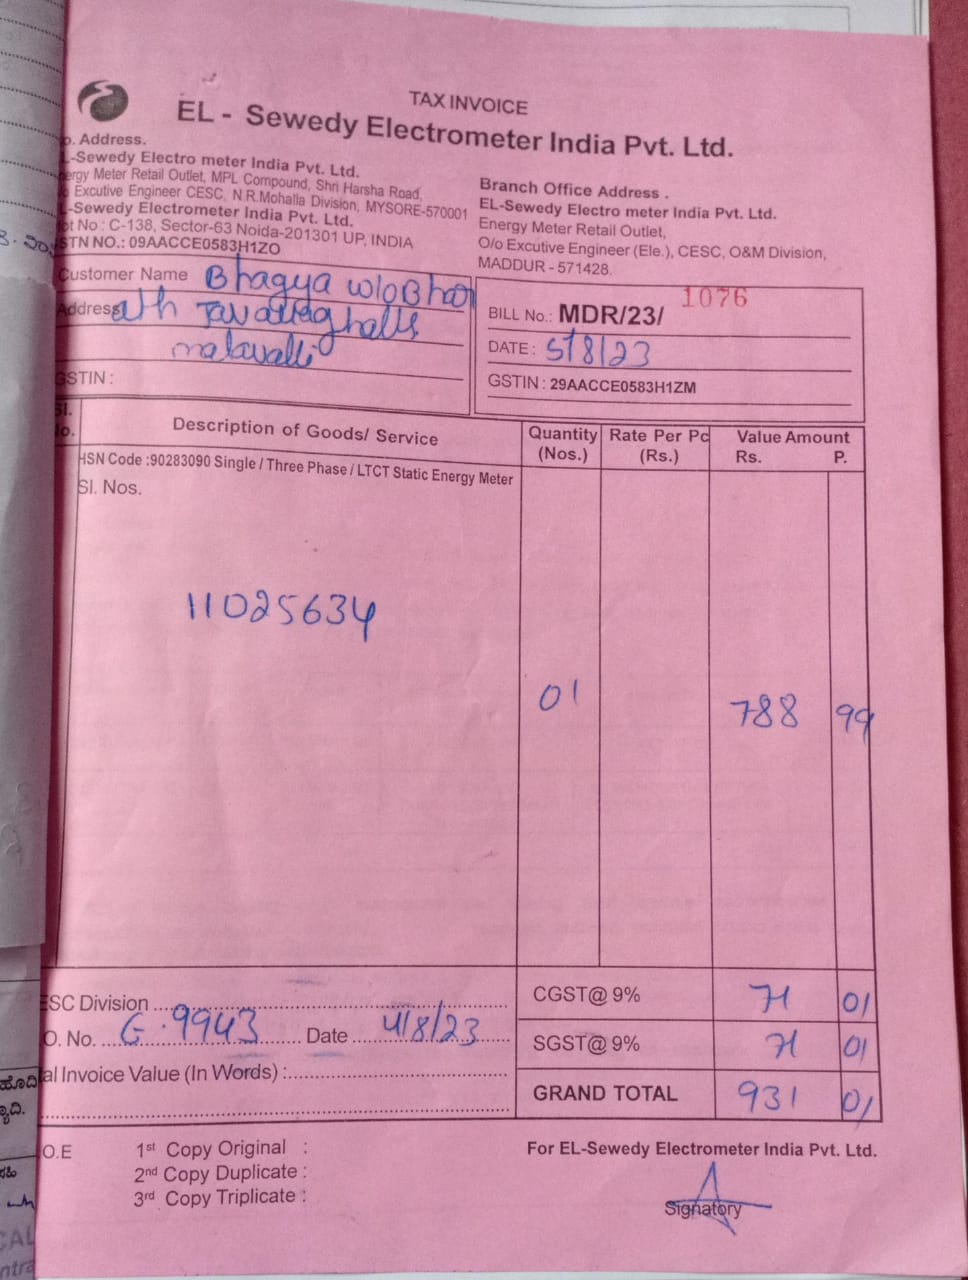 TAX INVOICE
EL - Sewedy Electrometer India Pvt. Ltd.
o. Address.
L-Sewedy Electro meter India Pvt. Ltd.
ergy Meter Retail Outlet, MPL Compound, Shri Harsha Road,
o Excutive Engineer CESC, N.R.Mohalla Division, MYSORE-570001
L-Sewedy Electrometer India Pvt. Ltd.
lot No : C-138, Sector-63 Noida-201301 UP, INDIA
STN NO.: 09AACCE0583H1ZO
Branch Office Address .
EL-Sewedy Electro meter India Pvt. Ltd.
Energy Meter Retail Outlet,
O/o Excutive Engineer (Ele.), CESC, O&M Division,
MADDUR - 571428.
Customer Name Bhagya W/o Bhar
Address ath
malavalli
GSTIN :
1076
BILL No.: MDR/23/
DATE : 5/8/23
GSTIN : 29AACCE0583H1ZM
Sl. No. Description of Goods/ Service Quantity (Nos.) Rate Per Pc (Rs.) Value Amount Rs. P.
HSN Code :90283090 Single / Three Phase / LTCT Static Energy Meter
Sl. Nos.
11025634
01 788 99
ESC Division
O. No. G.9943 Date 4/8/23
al Invoice Value (In Words) :
CGST@ 9% 71 01
SGST@ 9% 71 01
GRAND TOTAL 931 01
O.E
1st Copy Original :
2nd Copy Duplicate :
3rd Copy Triplicate :
For EL-Sewedy Electrometer India Pvt. Ltd.
Signatory